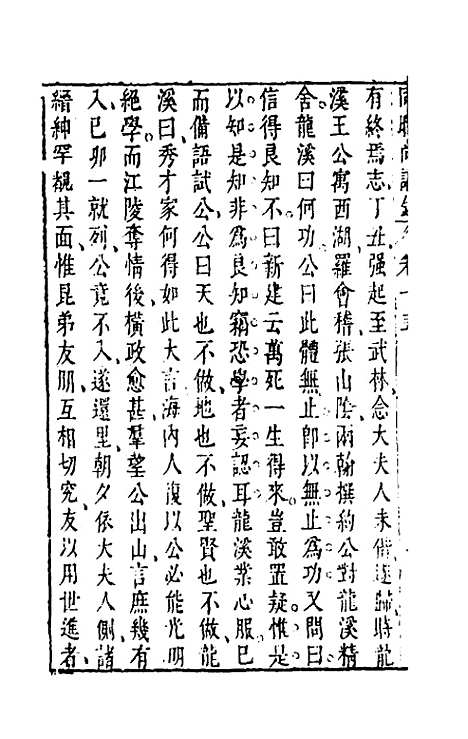 有終焉志丁丑強起至武林念大夫人未偕遂歸時龍
溪王公寓西湖羅會稽張山陰兩翰撰約公對龍溪精
舍龍溪曰何功公曰此體無止卽以無止爲功又問曰
信得良知不曰新建云萬死一生得來豈敢置疑惟是
以知是知非爲良知竊恐學者妄認耳龍溪業心服已
而備語試公公曰天也不做地也不做聖賢也不做龍
溪曰秀才家何得如此大言海内人復以公必能光明
絕學而江陵奪情後橫政愈甚羣望公出山言庶幾有
入已卯一就列公竟不入遂還里朝夕依大夫人側諸
縉紳罕覯其面惟昆弟友朋互相切究友以用世進者